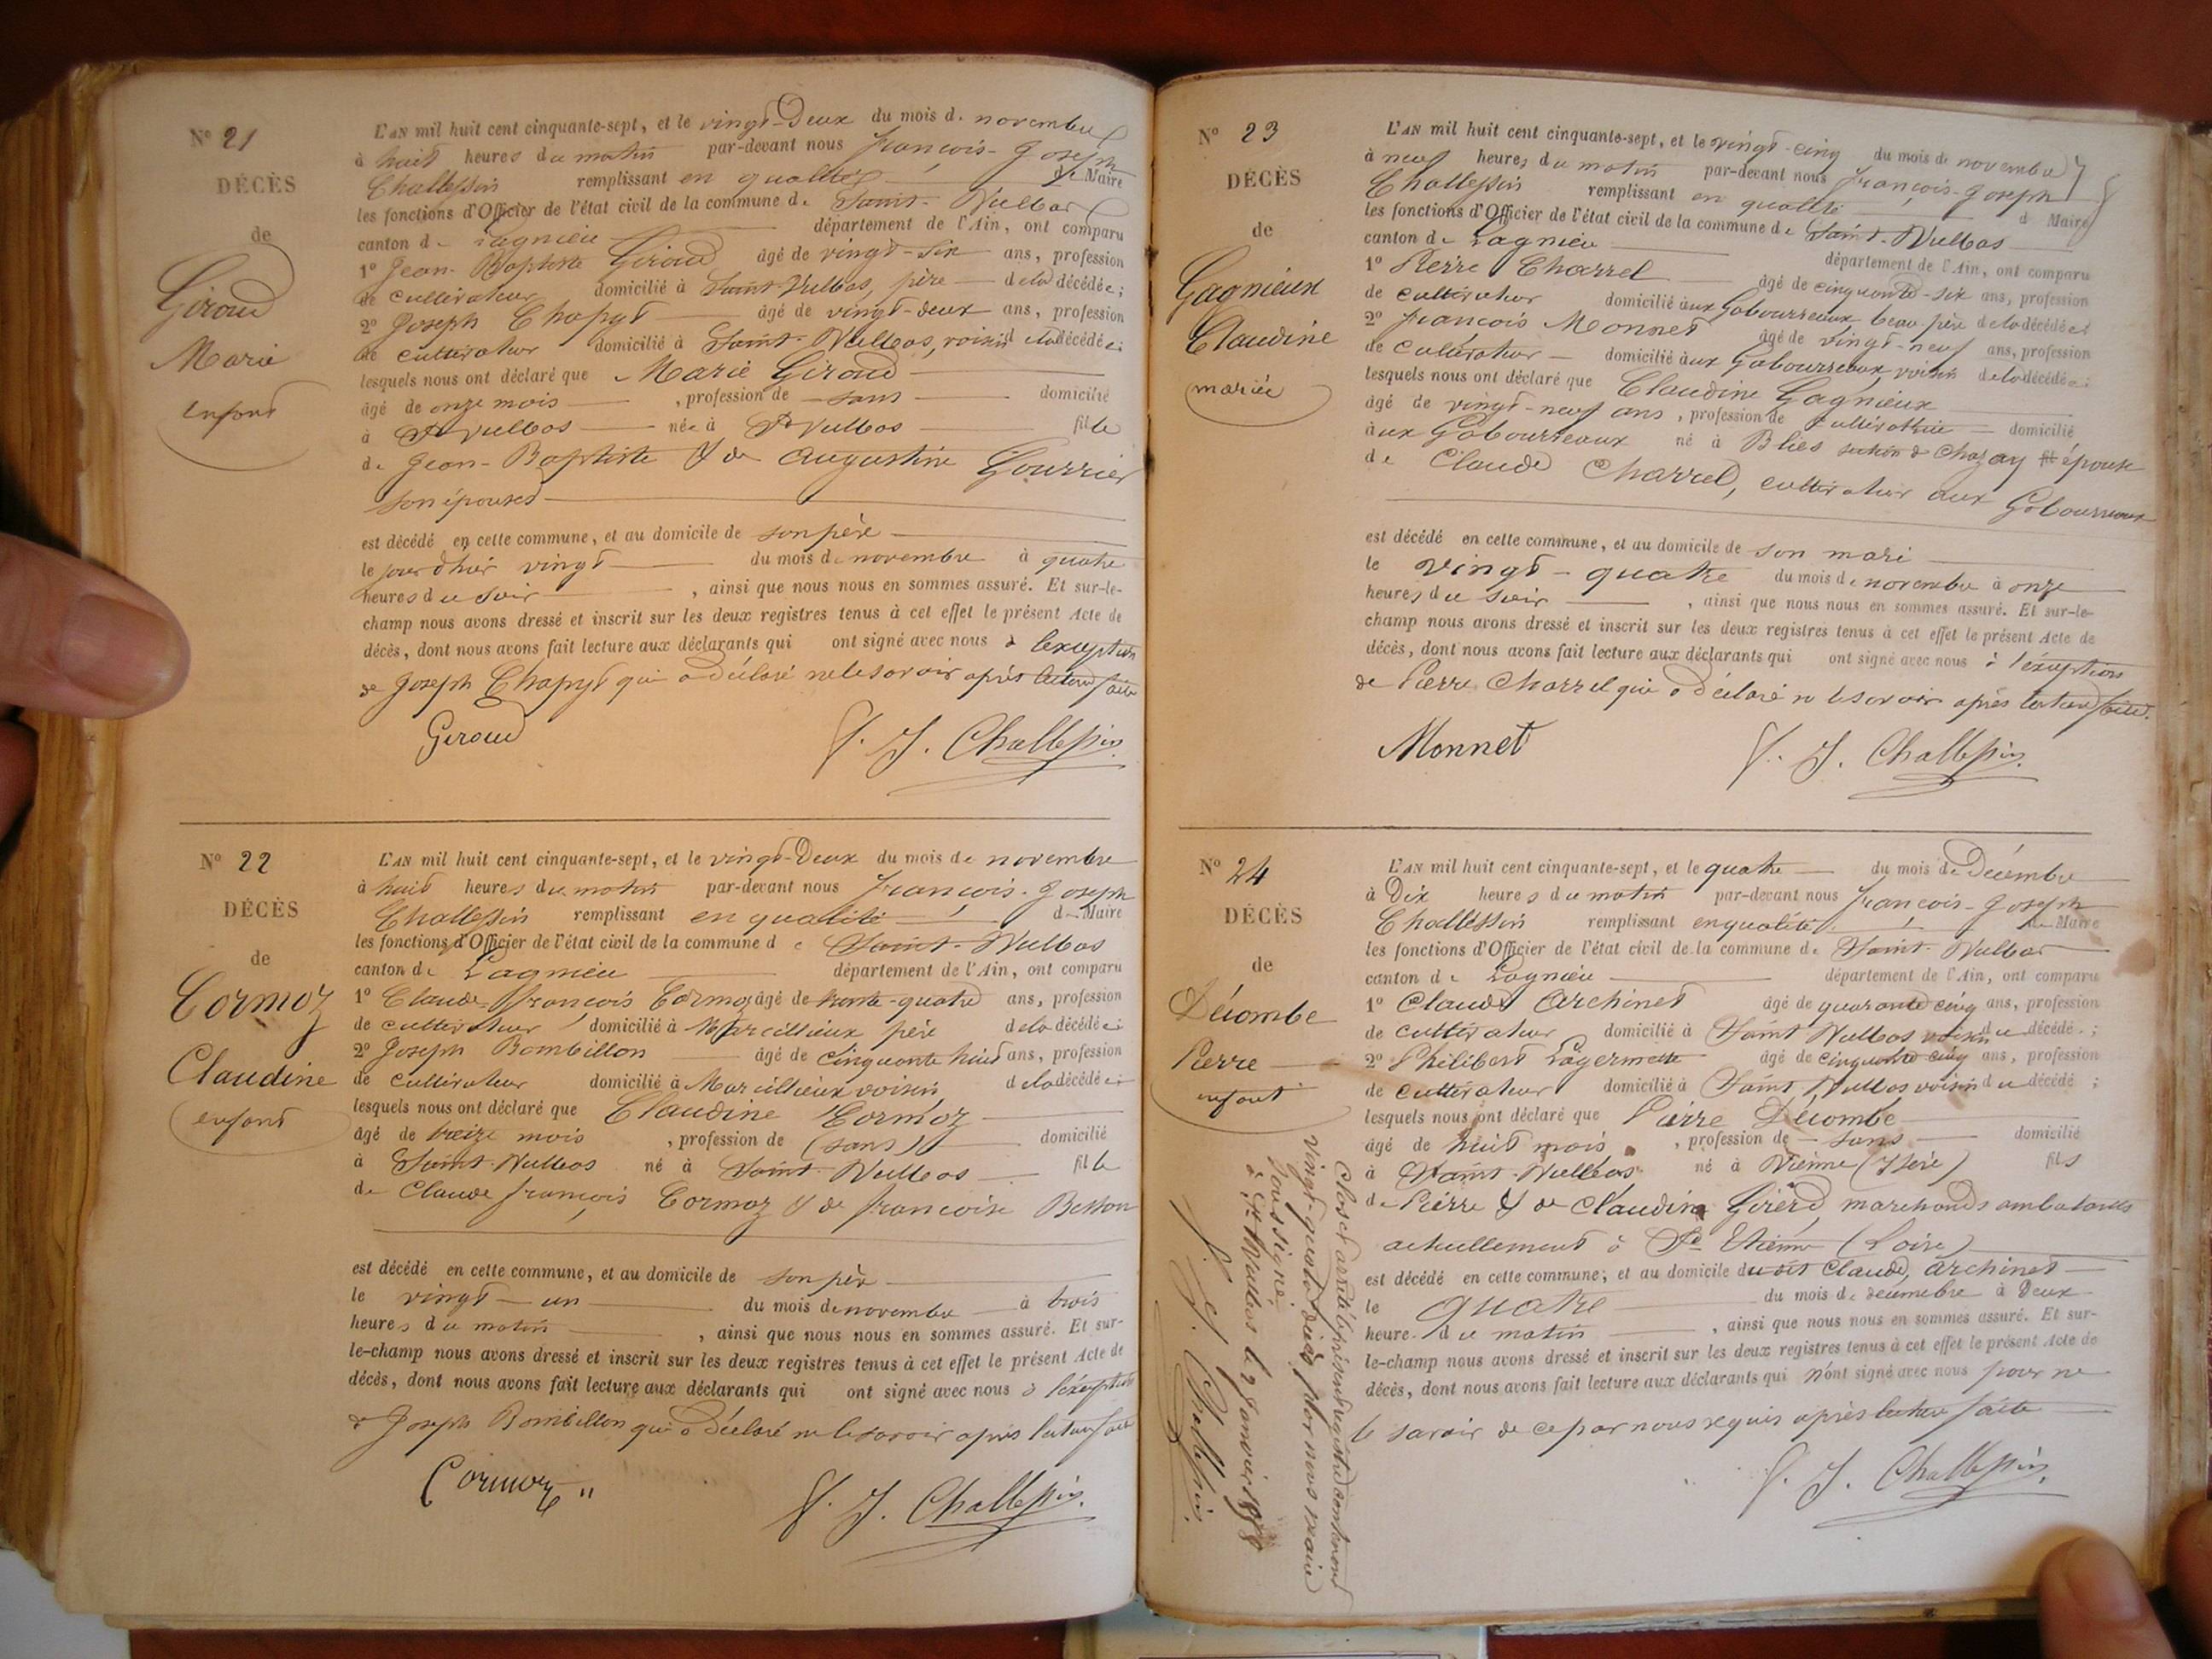 N° 21
DÉCÈS
de
Giroud
Marie
enfant
L'AN mil huit cent cinquante-sept, et le vingt-Deux du mois de novembre
à huit heures du matin par-devant nous françois-Joseph
Challessin remplissant en qualité de Maire
les fonctions d'Officier de l'état civil de la commune de Saint-Vulbas
canton de Lagnieu département de l'Ain, ont comparu
1° Jean-Baptiste Giroud âgé de vingt-six ans, profession
de cultivateur domicilié à Saint-Vulbas, père de la décédée;
2° Joseph Chapyt âgé de vingt-deux ans, profession
de cultivateur domicilié à Saint-Vulbas, voisin de la décédée;
lesquels nous ont déclaré que Marie Giroud
âgé de onze mois, profession de sans domicilié
à St Vulbas née à St Vulbas fille
de Jean-Baptiste & de augustine Gourrier
son épouse
est décédé en cette commune, et au domicile de son père
le jour d'hier vingt du mois de novembre à quatre
heures du soir, ainsi que nous nous en sommes assuré. Et sur-le-
champ nous avons dressé et inscrit sur les deux registres tenus à cet effet le présent Acte de
décès, dont nous avons fait lecture aux déclarants qui ont signé avec nous à l'exception
de Joseph Chapyt qui a déclaré ne le savoir après lecture faite
Giroud F. J. Challessin
N° 22
DÉCÈS
de
Cormoz
Claudine
enfant
L'AN mil huit cent cinquante-sept, et le vingt-Deux du mois de novembre
à huit heures du matin par-devant nous françois-Joseph
Challessin remplissant en qualité de Maire
les fonctions d'Officier de l'état civil de la commune de Saint-Vulbas
canton de Lagnieu département de l'Ain, ont comparu
1° Claude-françois Cormoz âgé de trente-quatre ans, profession
de cultivateur domicilié à Marcillieux père de la décédée;
2° Joseph Bombillon âgé de cinquante huit ans, profession
de cultivateur domicilié à Marcillieux voisin de la décédée;
lesquels nous ont déclaré que Claudine Cormoz
âgé de treize mois, profession de (sans) domicilié
à Saint-Vulbas né à Saint-Vulbas fille
de Claude françois Cormoz & de françoise Besson
est décédé en cette commune, et au domicile de son père
le vingt-un du mois de novembre à trois
heures du matin, ainsi que nous nous en sommes assuré. Et sur-
le-champ nous avons dressé et inscrit sur les deux registres tenus à cet effet le présent Acte de
décès, dont nous avons fait lecture aux déclarants qui ont signé avec nous à l'éxeption
de Joseph Bombillon qui a Déclaré ne le savoir après lecture faite
Cormoz F. J. Challessin.
N° 23
DÉCÈS
de
Gagnieux
Claudine
mariée
L'AN mil huit cent cinquante-sept, et le vingt-cinq du mois de novembre
à neuf heures du matin par-devant nous françois-Joseph
Challessin remplissant en qualité de Maire
les fonctions d'Officier de l'état civil de la commune de Saint-Vulbas
canton de Lagnieu département de l'Ain, ont comparu
1° Pierre Charrel âgé de cinquante-six ans, profession
de cultivateur domicilié aux Gabourreaux beau-père de la décédée;
2° françois Monnet âgé de vingt-neuf ans, profession
de cultivateur domicilié aux Gabourreaux, voisin de la décédée;
lesquels nous ont déclaré que Claudine Gagnieux
âgé de vingt-neuf ans, profession de cultivatrice domicilié
aux Gabourreaux né à Blies section de Chazay fil épouse
de Claude Charrel, cultivateur aux Gabourreaux
est décédé en cette commune, et au domicile de son mari
le vingt-quatre du mois de novembre à onze
heures du soir, ainsi que nous nous en sommes assuré. Et sur-le-
champ nous avons dressé et inscrit sur les deux registres tenus à cet effet le présent Acte de
décès, dont nous avons fait lecture aux déclarants qui ont signé avec nous à l'éxeption
de Pierre Charrel qui a déclaré ne le savoir après lecture faite.
Monnet F. J. Challessin.
N° 24
DÉCÈS
de
Décombe
Pierre
enfant
L'AN mil huit cent cinquante-sept, et le quatre du mois de Décembre
à Dix heures du matin par-devant nous françois-Joseph
Challéssin remplissant en qualité de Maire
les fonctions d'Officier de l'état civil de la commune de Saint-Vulbas
canton de Lagnieu département de l'Ain, ont comparu
1° Claude Archinet âgé de quarante cinq ans, profession
de cultivateur domicilié à Saint Vulbas voisin du décédé;
2° Philibert Lagermette âgé de cinquante cinq ans, profession
de cultivateur domicilié à Saint Vulbas voisin du décédé;
lesquels nous ont déclaré que Pierre Décombe
âgé de huit mois, profession de sans domicilié
à Saint-Vulbas né à Vienne (Isère) fils
de Pierre & de Claudine Girerd, marchands ambulants
actuellement à St Etienne (Loire)
est décédé en cette commune, et au domicile dudit Claude, Archinet
le quatre du mois de décembre à Deux
heure du matin, ainsi que nous nous en sommes assuré. Et sur-
le-champ nous avons dressé et inscrit sur les deux registres tenus à cet effet le présent Acte de
décès, dont nous avons fait lecture aux déclarants qui n'ont signé avec nous pour ne
le savoir de ce par nous requis après lecture faite
F. J. Challessin.
Clos et arrêté le présent registre contenant
vingt-quatre décès par nous maire
soussigné.
à St Vulbas le 2 Janvier 1858
F. J. Challessin.